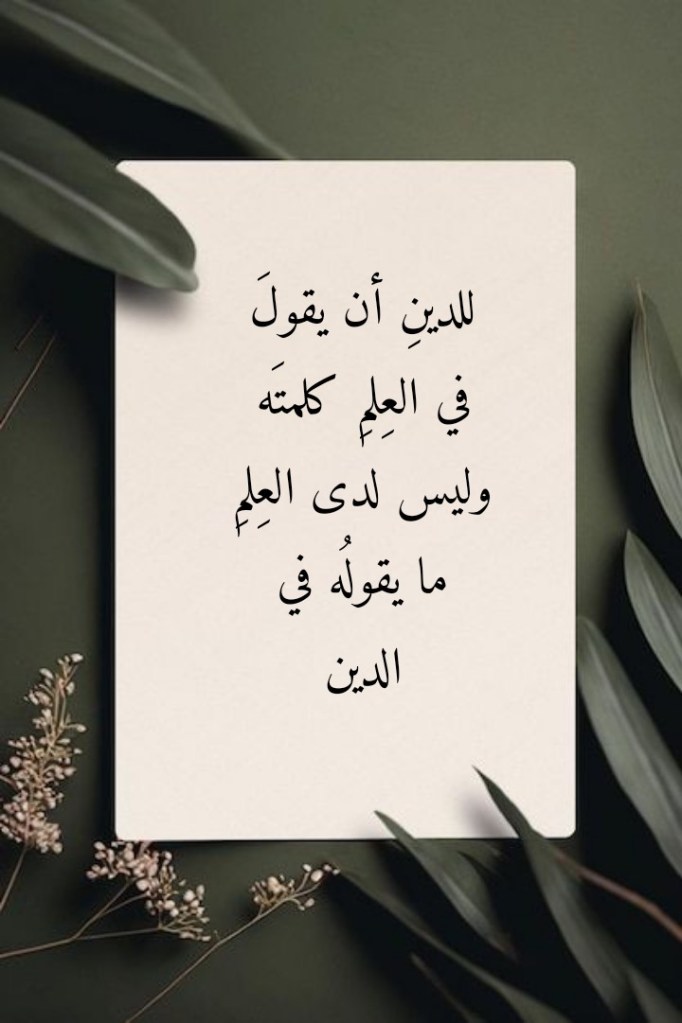 للدينِ أن يقولَ
في العِلمِ كلمتَه
وليس لدى العِلمِ
ما يقولُه في
الدين